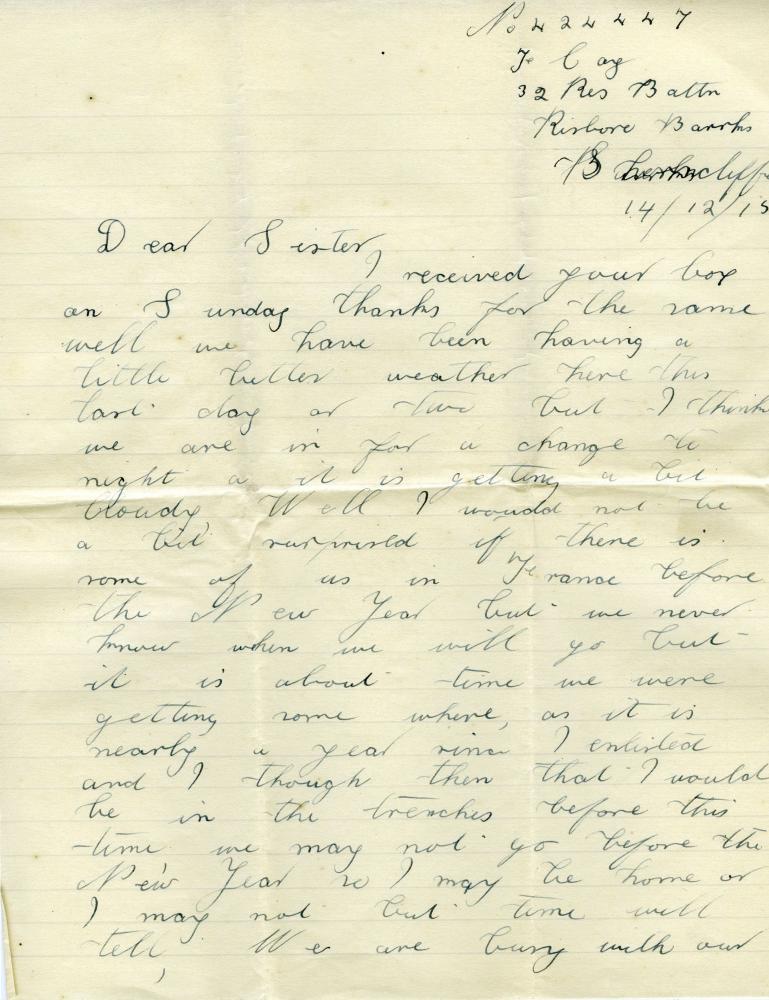 No 424447
F Coy
32 Res Battn
Risbore Barrks
14/12/15
Dear Sister,
I received your box
on Sunday thanks for the same
well we have been having a
little better weather here this
last day or two but I think
we are in for a change to
night a it is getting a bit
cloudy, Well I would not be
a bit surprised if there is
some of us in France before
the New Year but we never
know when we will go but
it is about time we were
getting some where, as it is
nearly a year since I enlisted
and I though then that I would
be in the trenches before this
time we may not go before the
New Year so I may be home or
I may not but time will
tell, We are busy with our